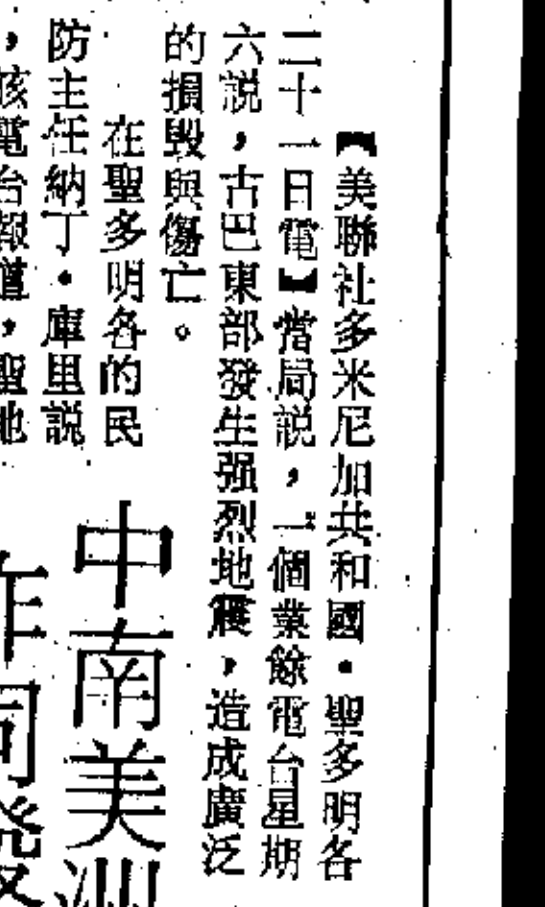 【美聯社多米尼加共和國·聖多明各
二十一日電】當局說，一個業餘電台星期
六説，古巴東部發生强烈地震，造成廣泛
的損毀與傷亡。
在聖多明各的民
防主任納丁·庫里説
，該電台報道，聖地
中南美洲
昨同發